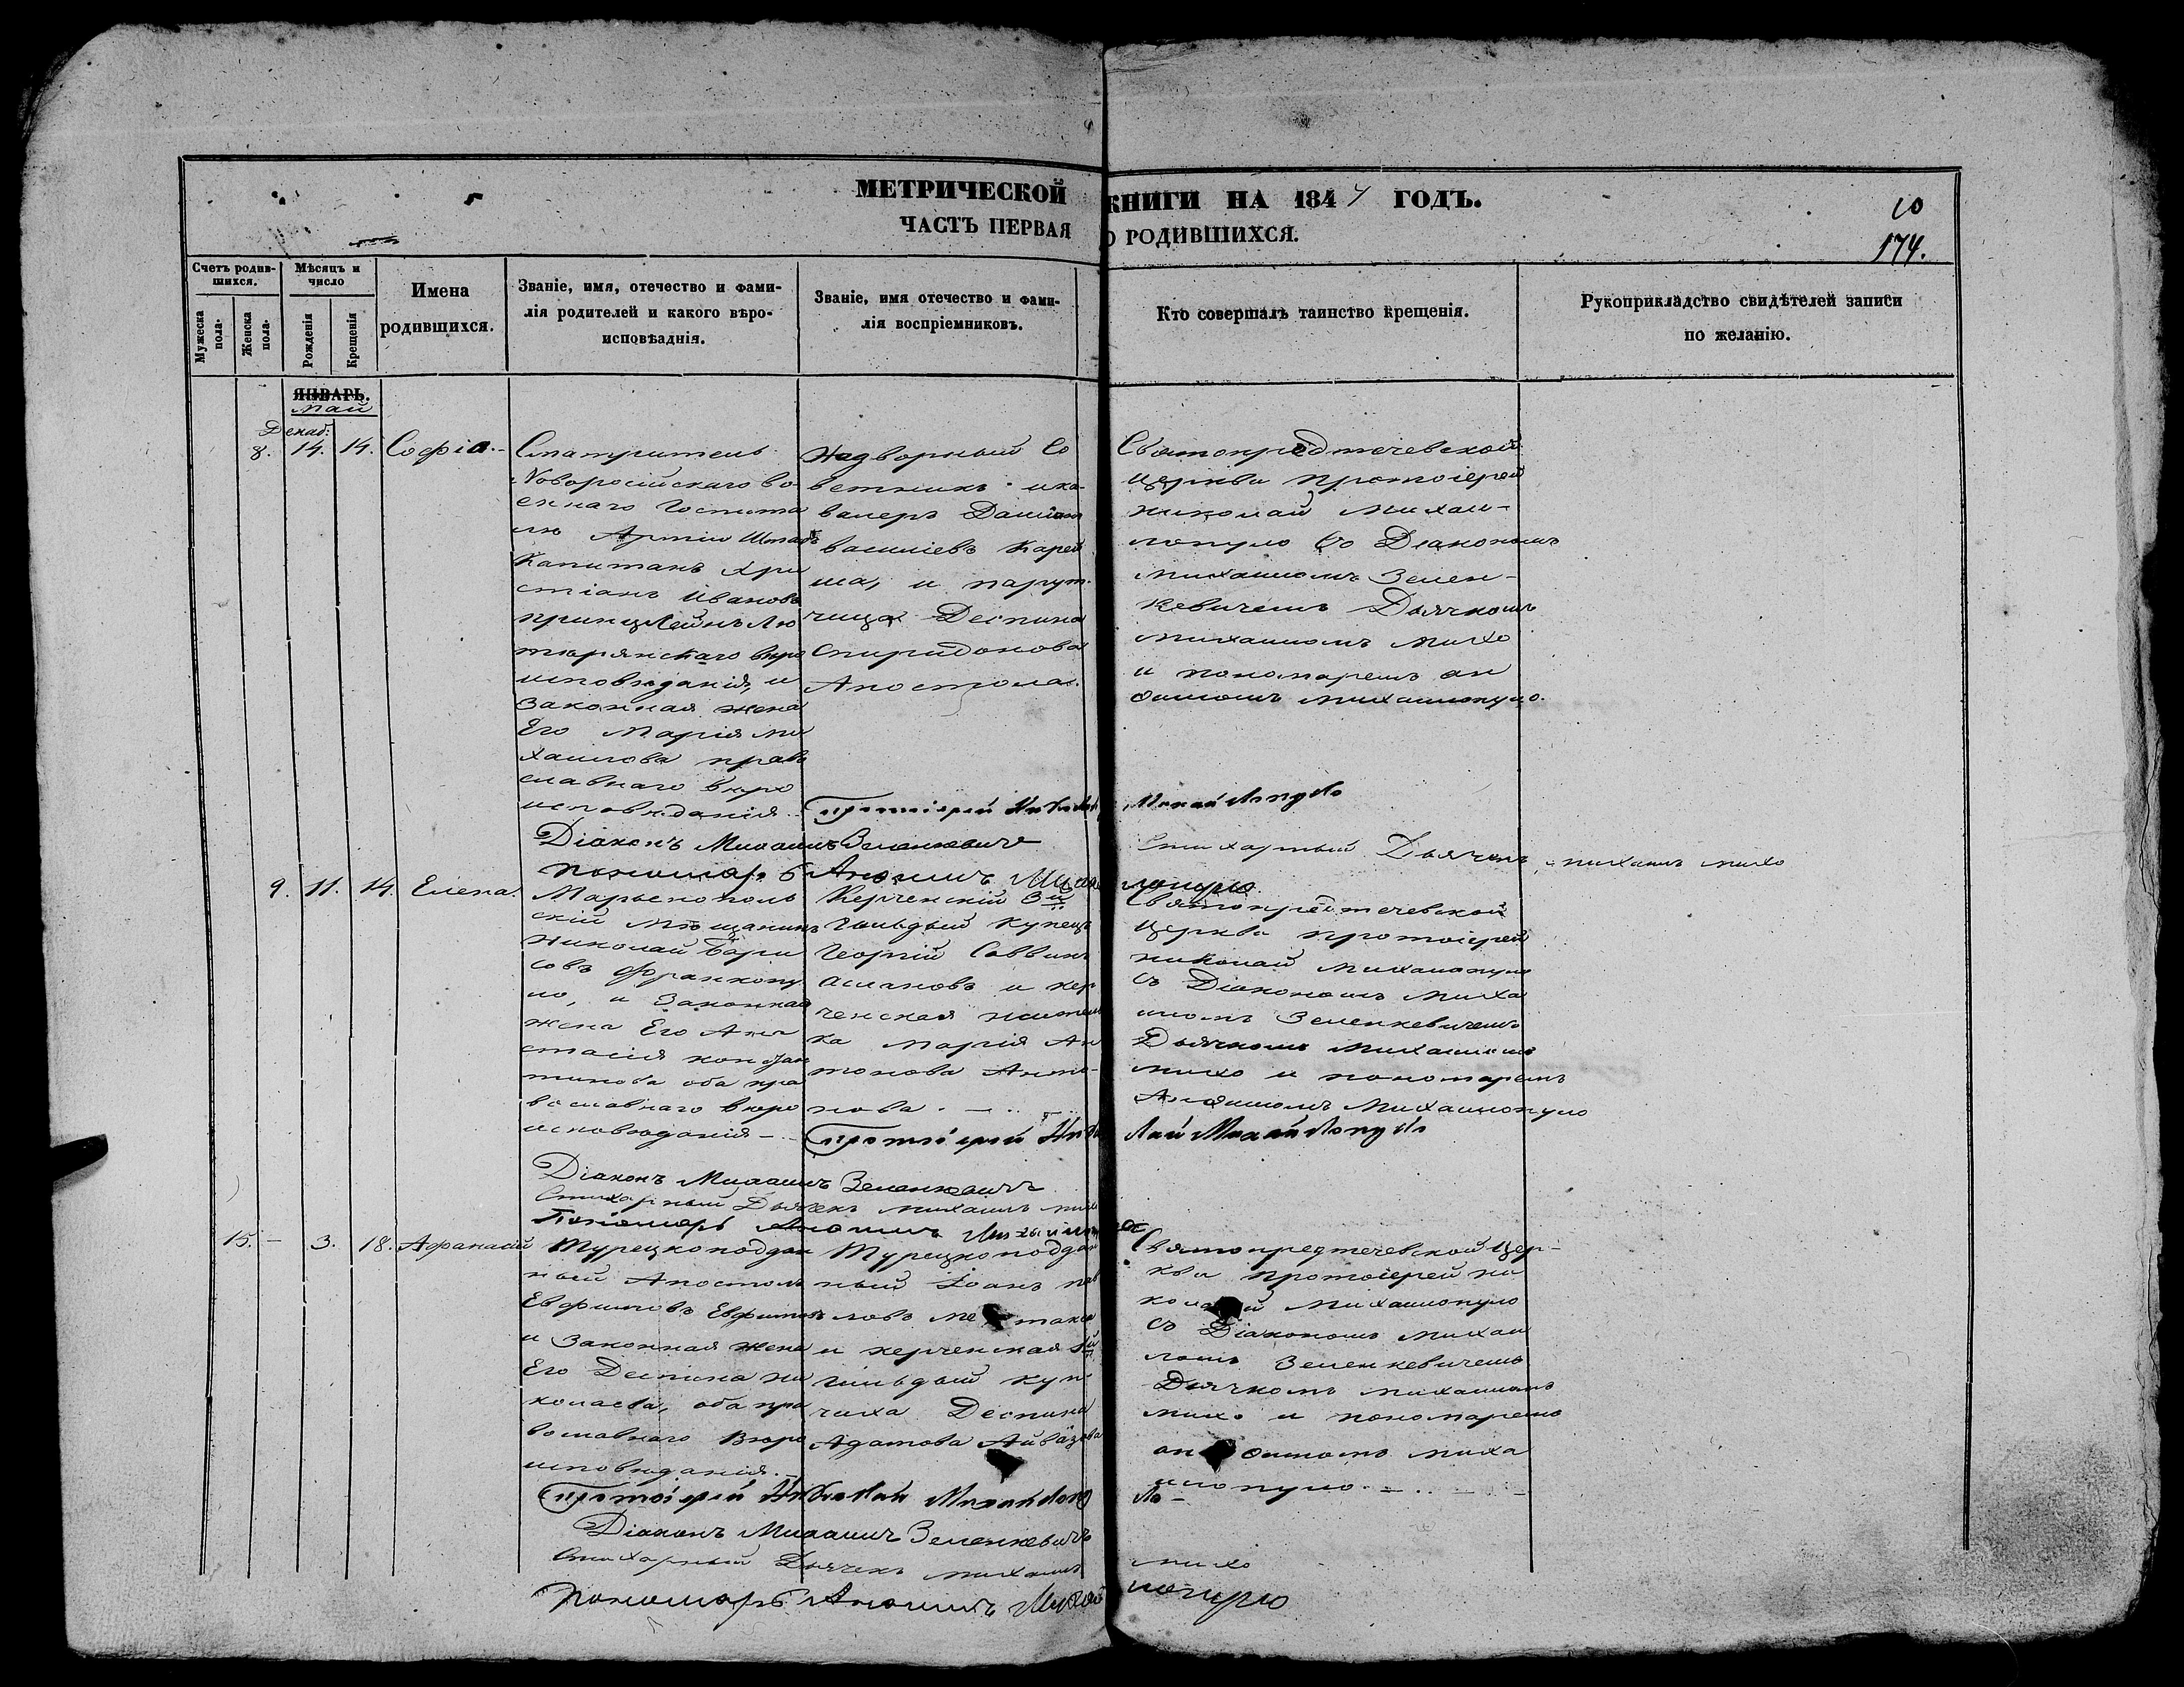 МЕТРИЧЕСКОЙ КНИГИ НА 1847 ГОДЪ.
ЧАСТЬ ПЕРВАЯ О РОДИВШИХСЯ.
10
174.
Счетъ родив-
шихся.
Мужеска
пола.
Женска
пола.
Мѣсяцъ и
число
Рожденія
Крещенія
Имена
родившихся.
Званіе, имя, отечество и фами-
лія родителей и какого вѣро-
исповѣаднія.
Званіе, имя отечество и фами-
лія воспріемниковъ.
Кто совершалъ таинство крещенія.
Рукоприкладство свидѣтелей записи
по желанію.
ЯНВАРЬ.
Май
Декаб:
8. 14. 14. Софіа.
Смотритель
Новоросійскаго во-
еннаго Госпита
лю Арміи Штабъ
Капитанъ Хри
стіанъ Ивановъ
Лю
терянскаго вѣро
исповѣданія, и
Законная жена
Его Марія Ми
хаилова прав
славнаго вѣро
исповѣданія.
Надворный Со
ветникъ и ка-
валеръ
василіевъ
и
Деспина
Спиридонова
Апостола.
Святопредтечевской
церкви протоіерей
николай Михаи-
лопуло Со Діакономъ
михаиломъ Зелен-
кевичемъ Дьячкомъ
михаиломъ михо
и пономаремъ ан
фимомъ михаилопуло.
Протоіерей Николай Михайлопуло
Діаконъ Михаилъ Зеленкевичъ
Стихарный Дьячекъ михаилъ михо
пономарь Анфимъ Михаилопуло
9. 11. 14. Елена.
Марьенополь
скій мѣщанинъ
николай Бори
совъ Франкопу
ло, и Законная
жена Его Ана
стасія констан
тинова оба пра
вославнаго вѣро
исповѣданія —
Керченскій 3й
Гильдый купецъ
Георгій Саввинъ
Аслановъ и кер
ченская жител
ка марія Ан
тонова Анто-
нова. —
Святопредтечевской
Церкви протоіерей
николай михаилопуло
съ Діакономъ миха
иломъ Зеленкевичемъ
Дьячкомъ михаиломъ
михо и пономаремъ
Анфимомъ Михаилопуло
Протоіерей Николай Михайлопуло
Діаконъ Михаилъ Зеленкевичъ
Стихарный Дьячекъ михаилъ михо
Пономарь Анфимъ
15. — 3. 18. Афанасій
Турецкоподдан
ный Апостолъ
Евфимовъ Евфимовъ
и Законная жена
Его Деспина ни
колаева, оба пра
вославнаго вѣро
исповѣданія. —
Турецкоподдан
ный Іоанъ пав
ловъ
и керченская
гильдый куп
чиха Деспина
Адамова Айвазова
Святопредтечевской цер-
кви протоіерей ни
колай михаилопуло
съ Діакономъ михаи
ломъ Зеленкевичемъ
Дьячкомъ михаиломъ
михо и пономаремъ
анфимомъ миха
илопуло. —
Протоіерей Николай Михайлопуло
Діаконъ Михаилъ Зеленкевичъ
Стихарный Дьячекъ михаилъ михо
Пономарь Анфимъ Михаилопуло